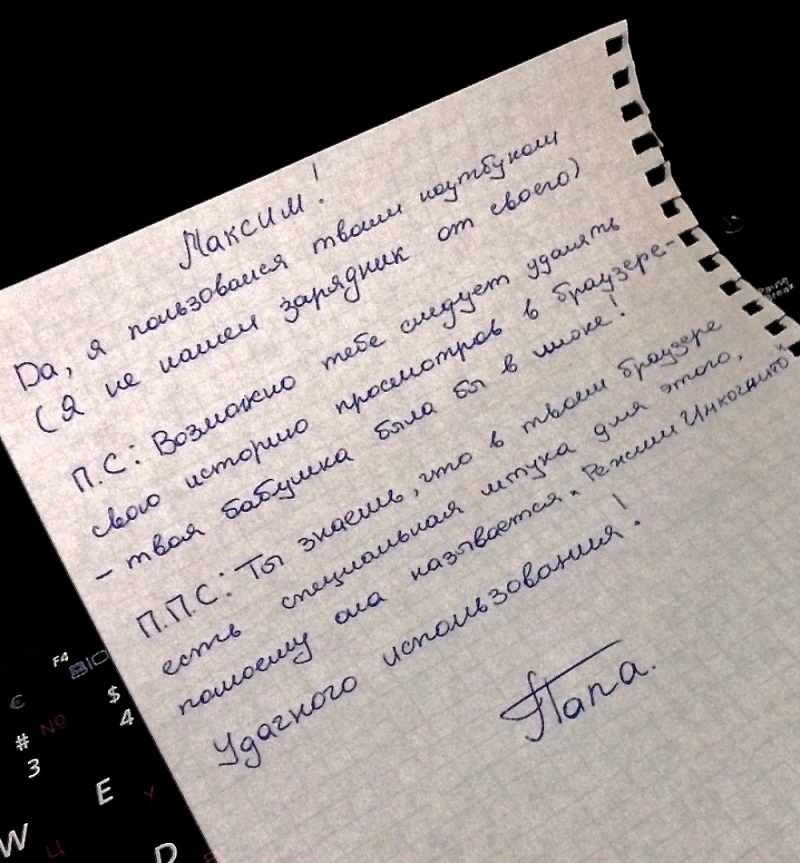 Максим!
Да, я пользовался твоим ноутбуком
(Я не нашел зарядник от своего)
П.С: Возможно тебе следует удалять
свою историю просмотров в браузере-
- твоя бабушка была бы в шоке!
П.П.С: Ты знаешь, что в твоем браузере
есть специальная штука для этого,
помоему она называется "Режим Инкогнито"
Удачного использования!
Папа.
Pause
Break
F4
€
$
4
№
#
3
E
У
W
Ц
D